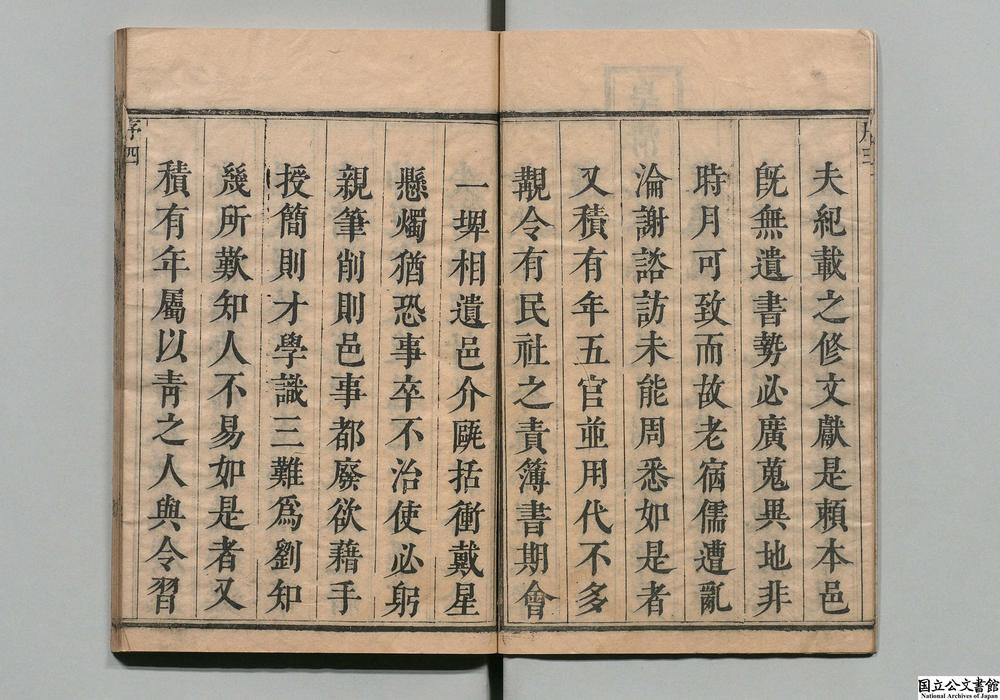 序三
夫紀載之修文獻是賴本邑
旣無遺書勢必廣蒐異地非
時月可致而故老宿儒遭亂
淪謝諮訪未能周悉如是者
又積有年五官並用代不多
覯令有民社之責簿書期會
一埤相遺邑介甌括衝戴星
懸燭猶恐事卒不治使必躬
親筆削則邑事都廢欲藉手
授簡則才學識三難爲劉知
幾所歎知人不易如是者又
積有年屬以靑之人與令習
序四
国立公文書館
National Archives of Japan